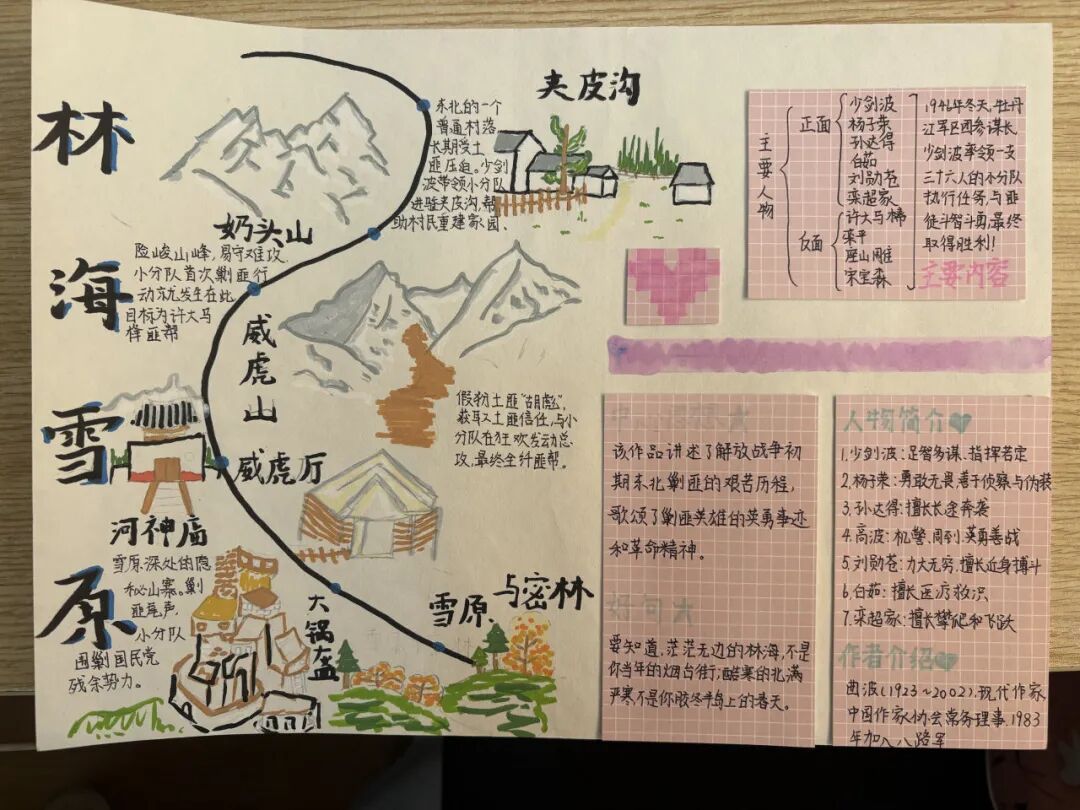 林
海
雪
原
夹皮沟
东北的一个
普通村落
长期受土
匪压迫。少剑
波带领小分队
进驻夹皮沟,帮
助村民重建家园。
奶头山
险峻山峰,易守难攻,
小分队首次剿匪行
动就发生在此,
目标为许大马
棒匪帮
威虎山
假扮土匪“胡彪”,
获取土匪信任,与小
分队在狂欢发动总
攻,最终全歼匪帮。
威虎厅
河神庙
雪原深处的隐
秘山寨。剿
匪尾声,
小分队
围剿国民党
残余势力。
大锅盔
雪原与密林
主要人物
正面
少剑波
杨子荣
孙达得
白茹
刘勋苍
栾超家
反面
许大马棒
栾平
座山雕
宋宝森
1946年冬天,牡丹
江军区团参谋长
少剑波率领一支
三十六人的小分队
执行任务,与匪
徒斗智斗勇,最终
取得胜利!
主要内容
该作品讲述了解放战争初
期东北剿匪的艰苦历程,
歌颂了剿匪英雄的英勇事迹
和革命精神。
好句
要知道,茫茫无边的林海,不是
你当年的烟台街;酷寒的北满
严寒不是你胶东半岛上的春天。
人物简介
1.少剑波:足智多谋,指挥若定
2.杨子荣:勇敢无畏善于侦察与伪装
3.孙达得:擅长长途奔袭
4.高波:机警、周到、英勇善战
5.刘勋苍:力大无穷,擅长近身搏斗
6.白茹:擅长医疗救识
7.栾超家:擅长攀爬和飞跃
作者介绍
曲波(1923~2002),现代作家
中国作家协会常务理事,1983
年加入八路军